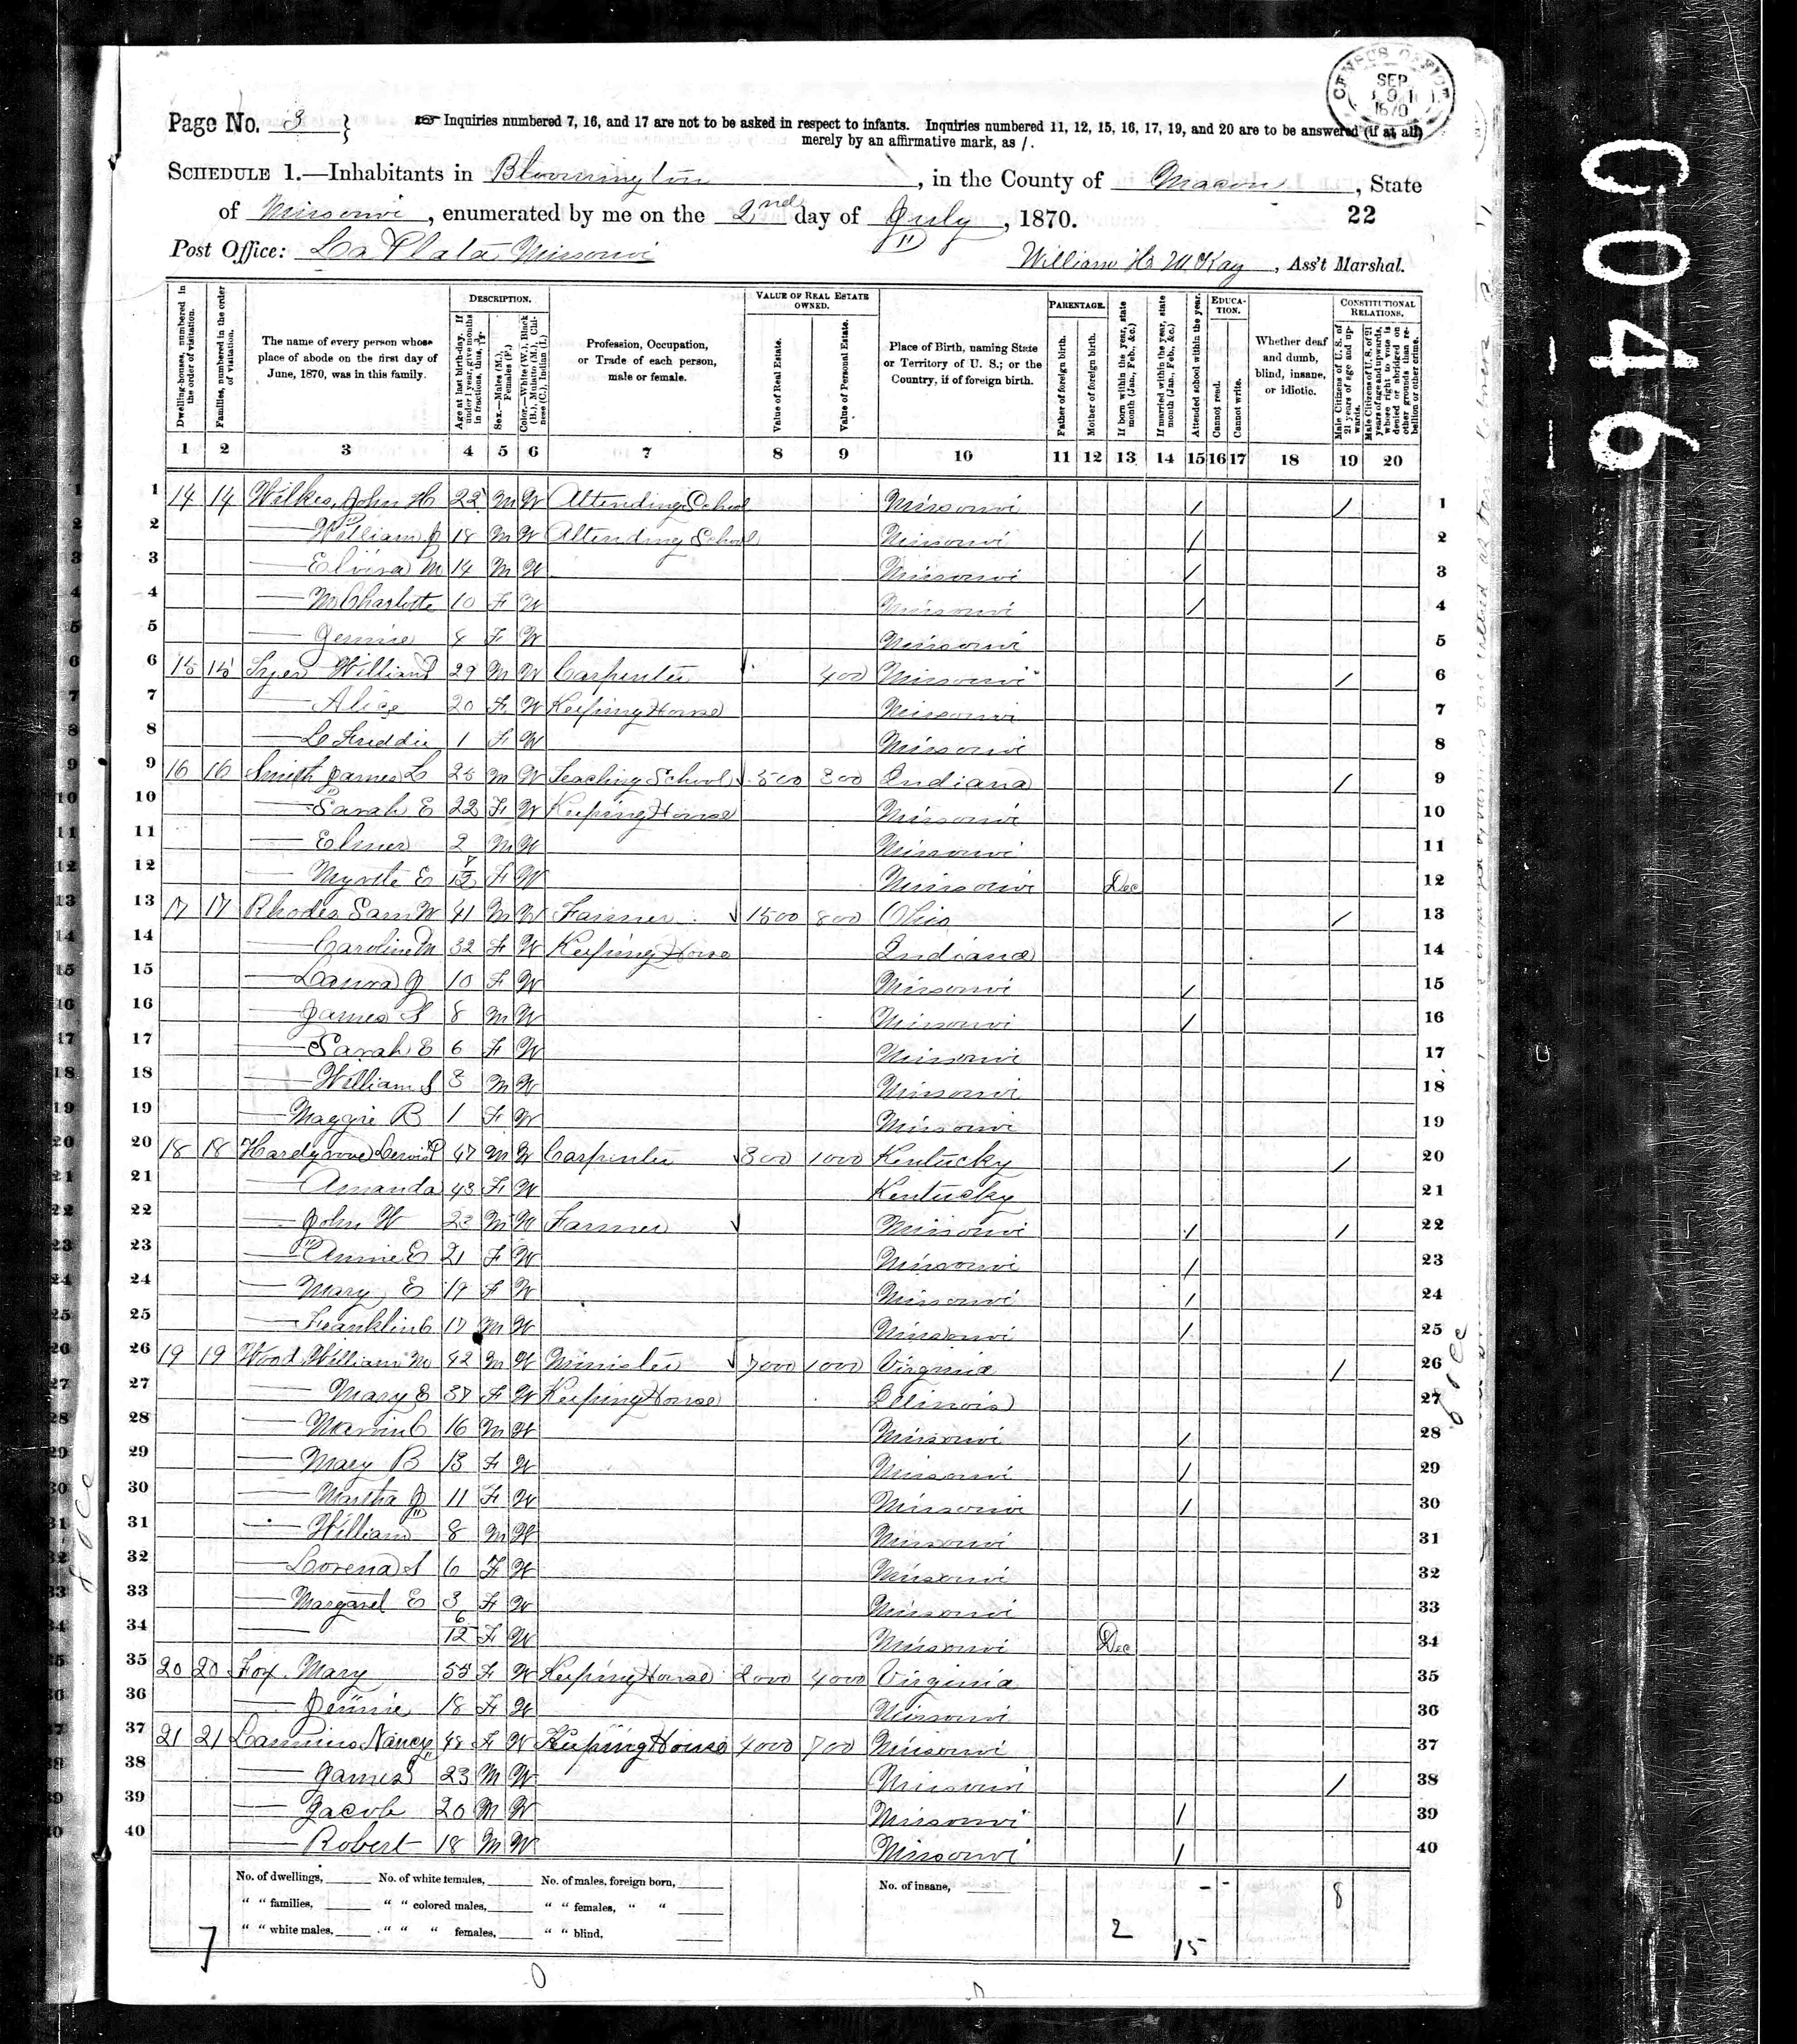 CENSUS OFFICE SEP 1870
Page No. 3 } Inquiries numbered 7, 16, and 17 are not to be asked in respect to infants. Inquiries numbered 11, 12, 15, 16, 17, 19, and 20 are to be answered (if at all)
merely by an affirmative mark, as /.
SCHEDULE 1.—Inhabitants in Bloomington, in the County of Macon, State
of Missouri, enumerated by me on the 2nd day of July, 1870. 22
Post Office: La Plata Missouri William H. McKay, Ass't Marshal.
Dwelling-houses, numbered in the order of visitation.
Families, numbered in the order of visitation.
The name of every person whose place of abode on the first day of June, 1870, was in this family.
DESCRIPTION.
Age at last birth-day. If under 1 year, give months in fractions, thus, 3/12.
Sex.—Males (M.), Females (F.)
Color.—White (W.), Black (B.), Mulatto (M.), Chinese (C.), Indian (I.)
Profession, Occupation, or Trade of each person, male or female.
VALUE OF REAL ESTATE OWNED.
Value of Real Estate.
Value of Personal Estate.
Place of Birth, naming State or Territory of U. S.; or the Country, if of foreign birth.
PARENTAGE.
Father of foreign birth.
Mother of foreign birth.
If born within the year, state month (Jan., Feb., &c.)
If married within the year, state month (Jan., Feb., &c.)
Attended school within the year.
EDUCATION.
Cannot read.
Cannot write.
Whether deaf and dumb, blind, insane, or idiotic.
CONSTITUTIONAL RELATIONS.
Male Citizens of U. S. of 21 years of age and upwards.
Male Citizens of U. S. of 21 years of age and upwards, whose right to vote is denied or abridged on other grounds than rebellion or other crime.
1 2 3 4 5 6 7 8 9 10 11 12 13 14 15 16 17 18 19 20
1 14 14 Wilkes, John H 22 M W Attending School Missouri / / 1
2 — William J 18 M W Attending School Missouri / 2
3 — Elvira M 14 M W Missouri / 3
4 — M Charlotte 10 F W Missouri / 4
5 — Jennie F W Missouri 5
6 15 15 William 29 M W Carpenter 400 Missouri / 6
7 — Alice 20 F W Keeping House Missouri 7
8 — L Freddie 1 F W Missouri 8
9 16 16 Smith James L 25 M W Teaching School 500 300 Indiana / 9
10 — Sarah E 22 F W Keeping House Missouri 10
11 — Elmer 2 M W Missouri 11
12 — E /12 F W Missouri Dec 12
13 17 17 Rhodes Sam W 41 M W Farmer 1500 800 Ohio / 13
14 — Caroline M 32 F W Keeping House Indiana 14
15 — Laura J 10 F W Missouri / 15
16 — James S 8 M W Missouri / 16
17 — Sarah E 6 F W Missouri 17
18 — William S 3 M W Missouri 18
19 — Maggie B 1 F W Missouri 19
20 18 18 Hardgrove Lewis P 47 M W Carpenter 300 1000 Kentucky / 20
21 — Amanda 43 F W Kentucky 21
22 — John W 23 M W Farmer Missouri / / 22
23 — Annie E 21 F W Missouri / 23
24 — Mary E 19 F W Missouri / 24
25 — Franklin C 17 M W Missouri / 25
26 19 19 Wood William M 42 M W Minister 7000 1000 Virginia / 26
27 — Mary E 37 F W Keeping House Illinois 27
28 — Marvin C 16 M W Missouri / 28
29 — Mary B 13 F W Missouri / 29
30 — Martha J 11 F W Missouri / 30
31 — William 8 M W Missouri 31
32 — Lorena S 6 F W Missouri 32
33 — Margaret E 3 F W Missouri 33
34 — 6/12 F W Missouri Dec 34
35 20 20 Fox Mary 55 F W Keeping House 2000 4000 Virginia 35
36 — Jennie 18 F W Missouri 36
37 21 21 Nancy 48 F W Keeping House 4000 700 Missouri 37
38 — James 23 M W Missouri / 38
39 — Jacob 20 M W Missouri / 39
40 — Robert 18 M W Missouri / 40
No. of dwellings, No. of white females, No. of males, foreign born, No. of insane, - - 8
" " families, " " colored males, " " females, " "
" " white males, " " " females, " " blind, 2 15
7
0496